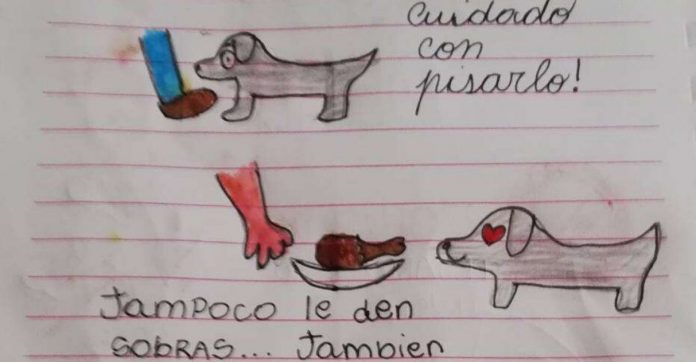 cuidado
con
pisarlo!
Tampoco le den
SOBRAS... Tambien